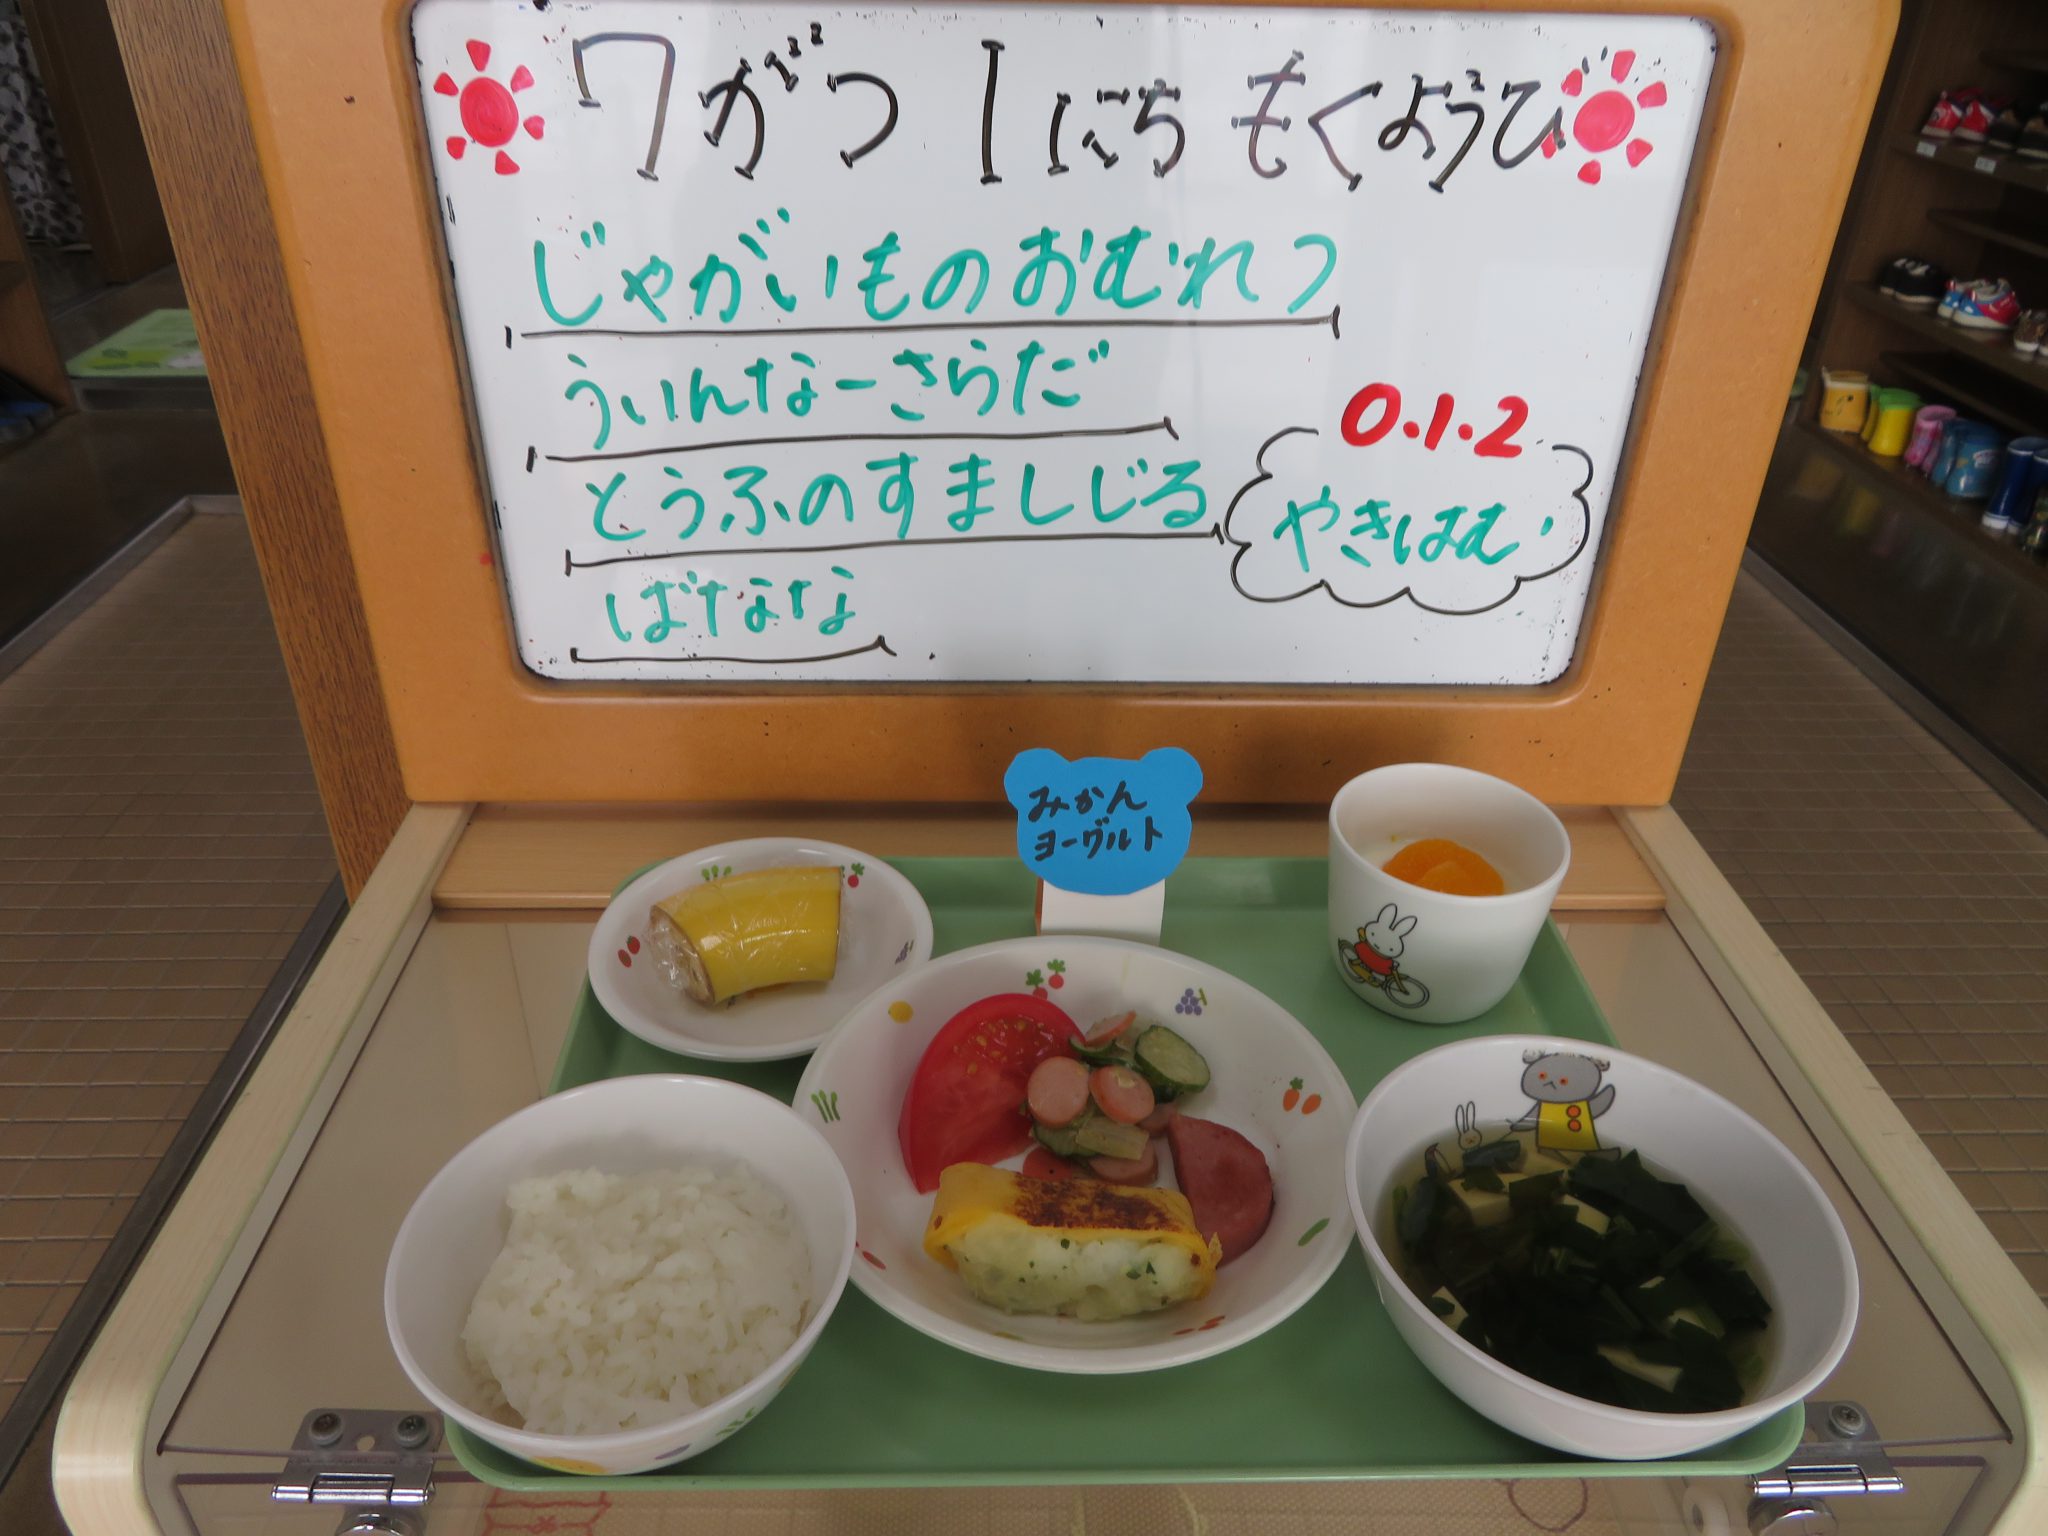 7がつ 1にち もくようび
じゃがいものおむれつ
ういんなーさらだ
とうふのすましじる
ばなな
0.1.2
やきはむ
みかん
ヨーグルト